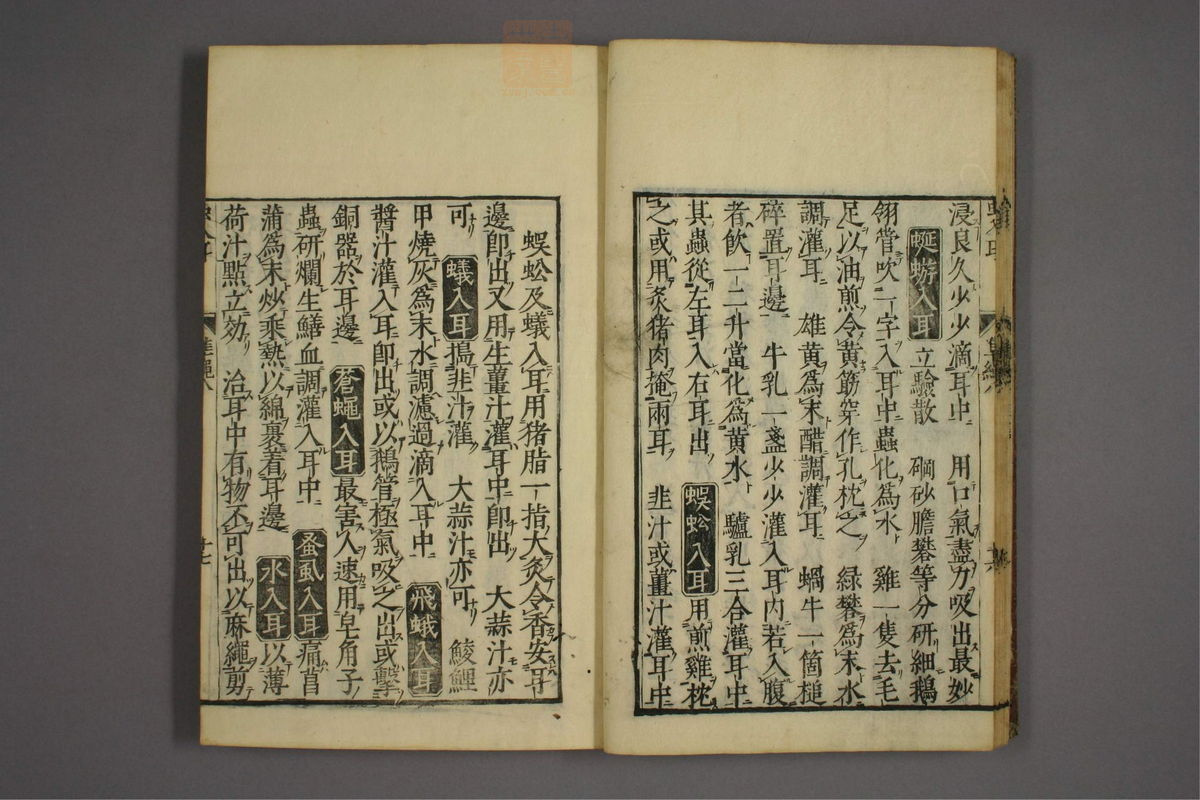 浸良久少少滴耳中　用口氣盡力吸出最妙
蜒蝣入耳　立驗散　硇砂膽礬等分研細鵝
翎管吹一字入耳中蟲化爲水　雞一隻去毛
足以油煎令黄筋穿作孔枕之　緑礬爲末水
調灌耳　雄黄爲末醋調灌耳　蝸牛一箇槌
碎置耳邊　牛乳一盞少少灌入耳内若入腹
者飲一二升當化爲黄水　驢乳三合灌耳中
其蟲從左耳入右耳出　蜈蚣入耳用煎雞枕
之或用炙猪肉掩兩耳　韭汁或薑汁灌耳中
蜈蚣及蟻入耳用猪脂一指大灸令香安耳
邊即出又用生薑汁灌耳中即出　大蒜汁亦
可　蟻入耳搗韭汁灌　大蒜汁亦可　鯪鯉
甲燒灰爲末水調濾過滴入耳中　飛蛾入耳
醬汁灌入耳即出或以鵝管極氣吸之出或擊
銅器於耳邊　蒼蠅入耳最害人速用皂角子
蟲研爛生鱔血調灌入耳中　蚤虱入耳痛菖
蒲爲末炒乘熱以綿裹着耳邊　水入耳以薄
荷汁點立効　治耳中有物不可出以麻繩剪